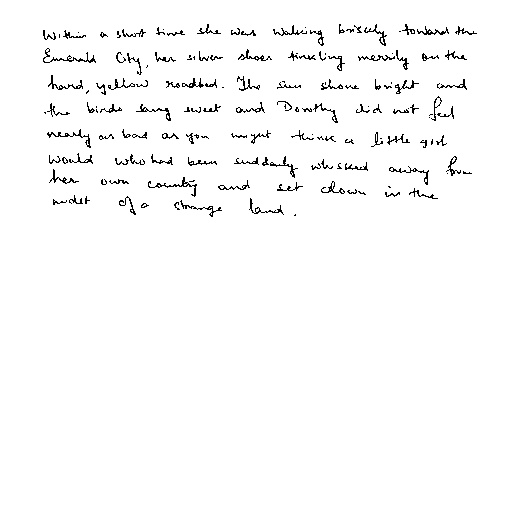 Within a short time she was walking briskly toward the
Emerald City, her silver shoes tinkling merrily on the
hard, yellow roadbed. The sun shone bright and
the birds sang sweet and Dorothy did not feel
nearly as bad as you might think a little girl
would who had been suddenly whisked away from
her own country and set down in the
midst of a strange land.